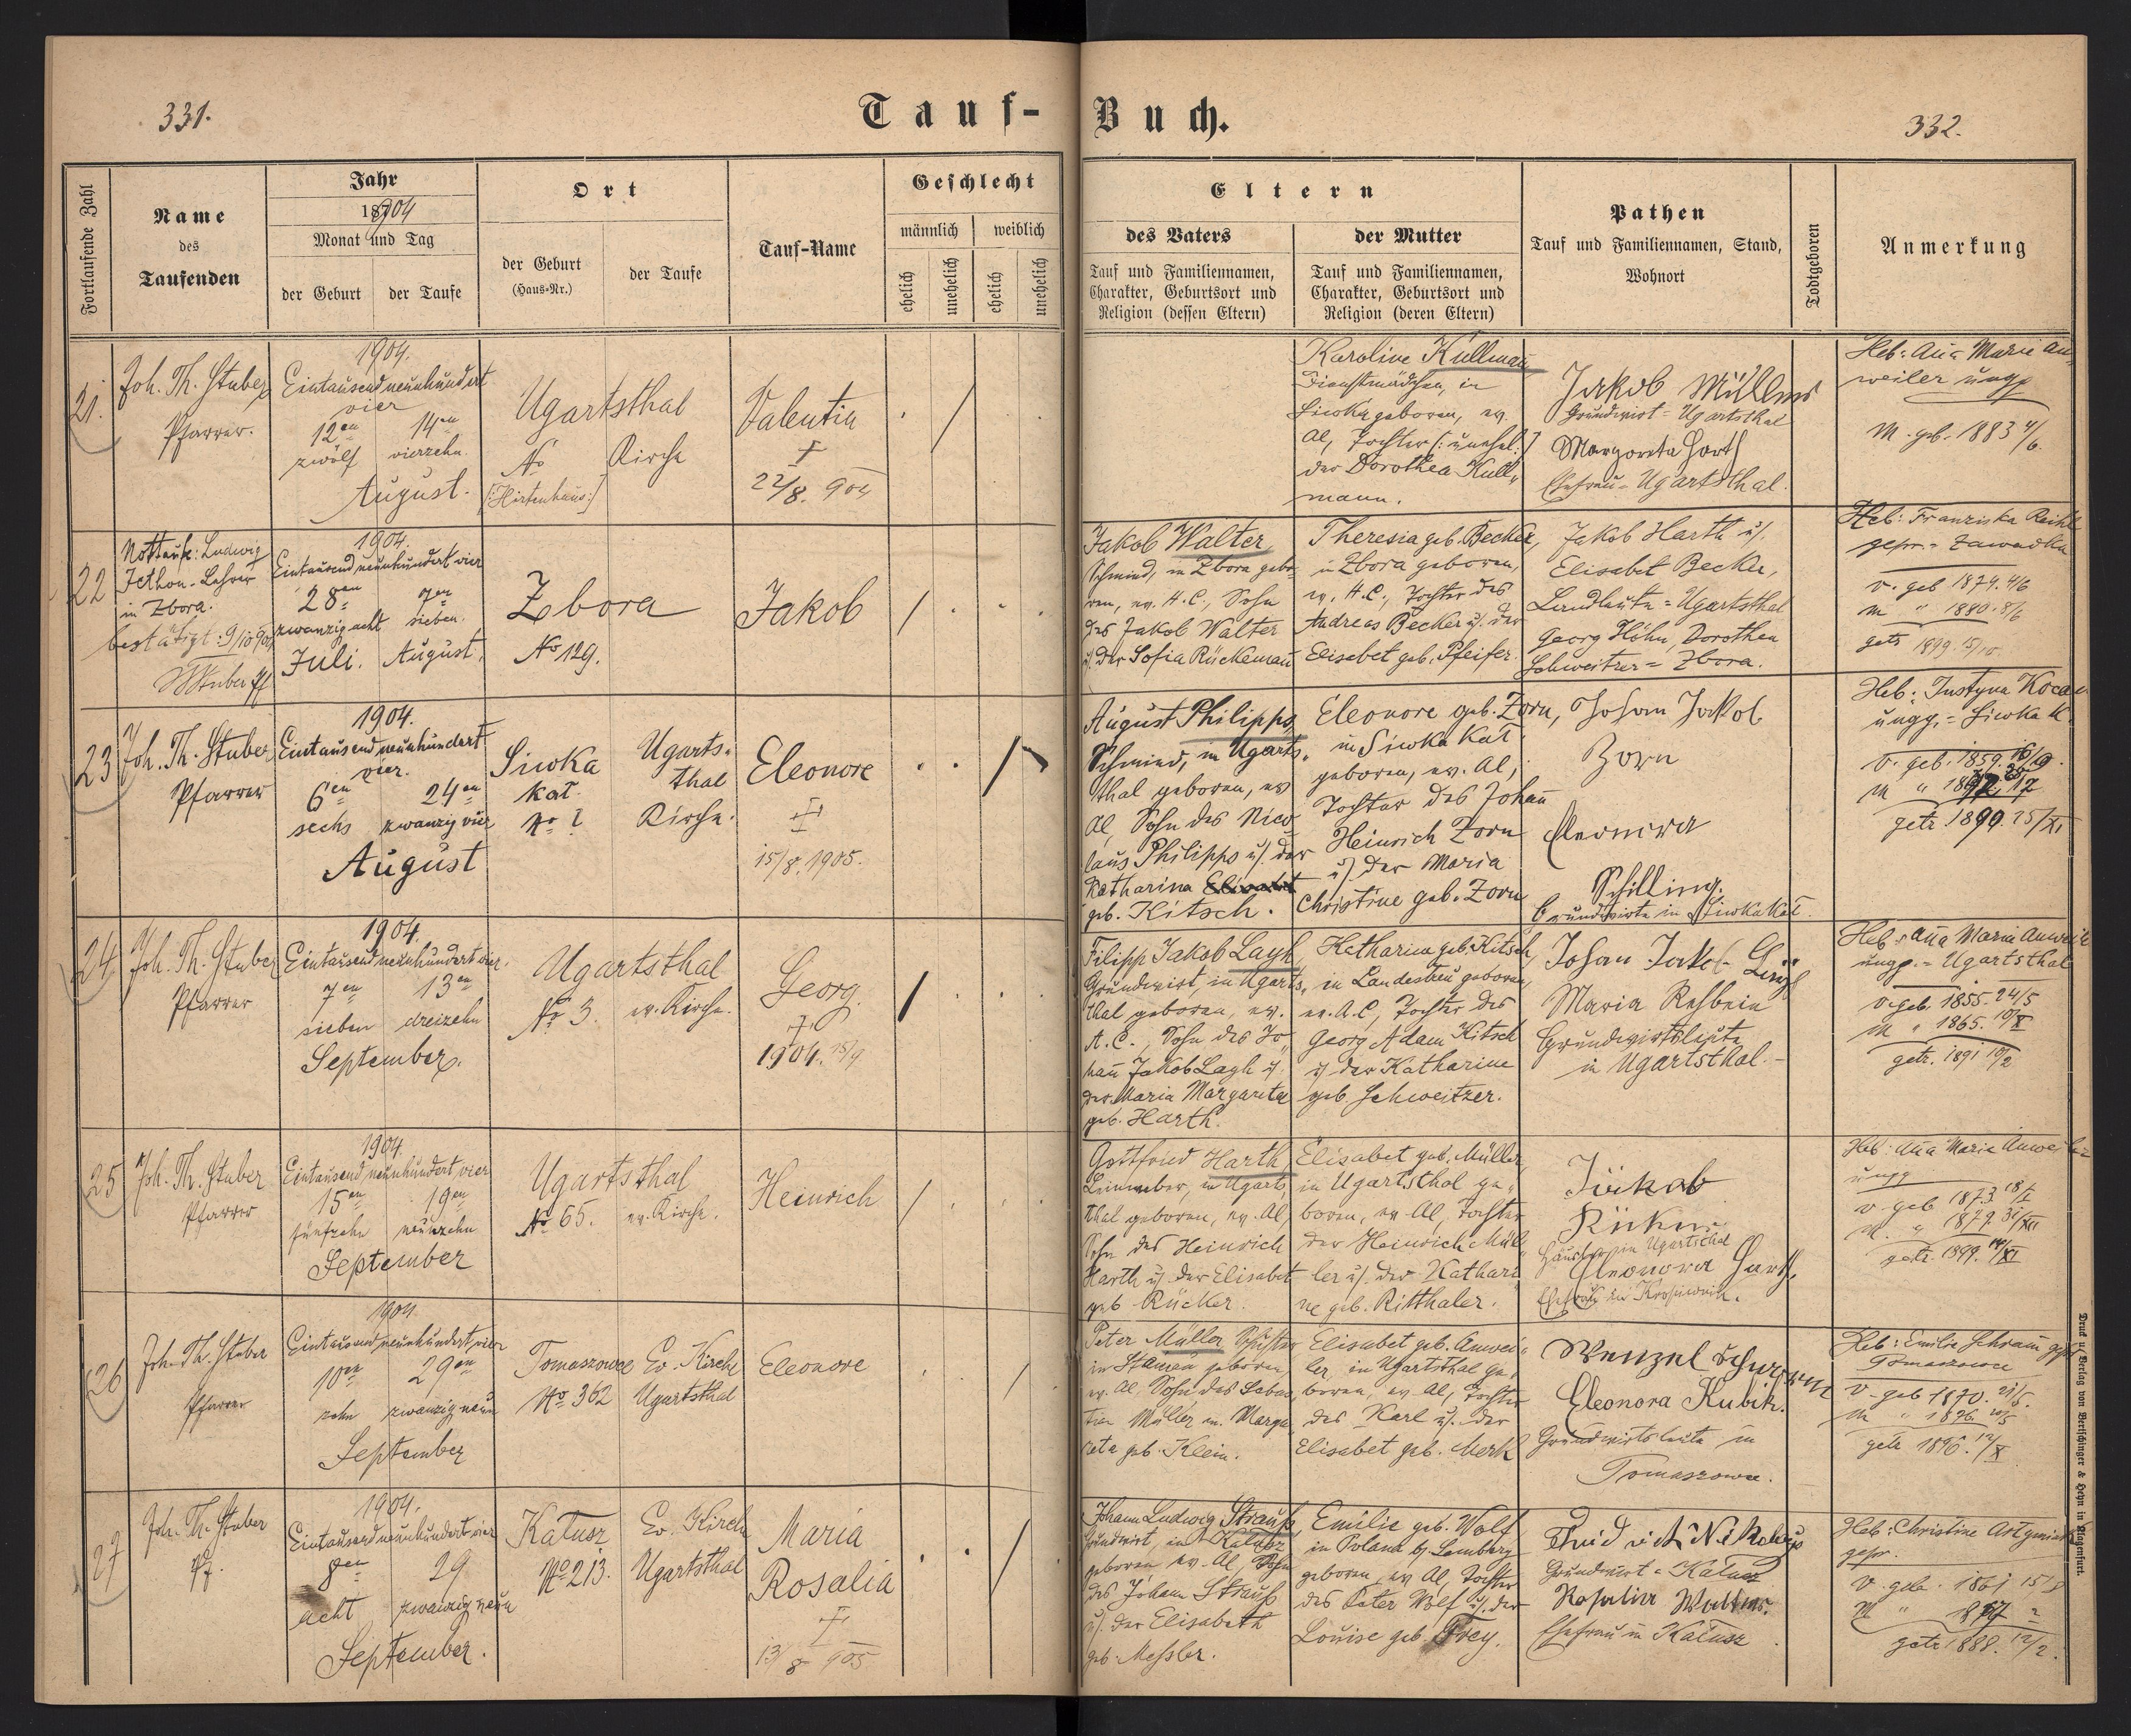 331.
Tauf-
Buch.
332.
Fortlaufende Zahl
Name
des
Taufenden
Jahr
1904
Monat und Tag
der Geburt
der Taufe
Ort
der Geburt
(Haus-Nr.)
der Taufe
Tauf-Name
Geschlecht
männlich
weiblich
ehelich
unehelich
ehelich
unehelich
Eltern
des Vaters
Tauf und Familiennamen,
Charakter, Geburtsort und
Religion (dessen Eltern)
der Mutter
Tauf und Familiennamen,
Charakter, Geburtsort und
Religion (deren Eltern)
Pathen
Tauf und Familiennamen, Stand,
Wohnort
Todtgeboren
Anmerkung
21.
Joh. Th. Stuber
Pfarrer.
1904.
Eintausendneunhundert
vier
12en 14en
zwölf vierzehn
August.
Ugartsthal
No Kirche
[:Hirtenhaus:]
Valentin
†
22/8. 904
Karoline Kullmann
Dienstmädchen, in
Siwka geboren, ev.
Al, Tochter [:unehel:]
der Dorothea Kull„
mann.
Jakob Müller
Grundwirt = Ugartsthal
Margareta Harth
Ehefrau = Ugartsthal.
Heb: Anna Maria An
weiler ungp
M. geb. 1883 4/6.
22
Nottaufe: Ludwig
Jethon - Lehrer
in Zbora.
bestätigt: 9/10 904
Stuber Pf
1904.
Eintausendneunhundert vier
28en 7en
zwanzig acht sieben.
Juli. August.
Zbora
No 129.
Jakob
Jakob Walter
Schmied, in Zbora gebo-
ren, ev. H.C., Sohn
des Jakob Walter
u. der Sofia Rückemann
Theresia geb. Becker,
in Zbora geboren,
ev. H.C., Tochter des
Andreas Becker u. der
Elisabet geb. Pfeifer.
Jakob Harth u.
Elisabet Becker,
Landleute = Ugartsthal
Georg Höhn, Dorothea
Schweitzer = Zbora.
Heb: Franziska
gepr. = Zawadka
v. geb 1874. 4/6
m " 1880. 8/6
getr 1899. 15/10.
23
Joh. Th. Stuber
Pfarrer
1904.
Eintausendneunhundert
vier.
6en 24en
sechs zwanzig vier
August
Siwka Ugarts-
kat. thal
No ? Kirche.
Eleonore
†
15/8. 1905.
August Philipps,
Schmied, in Ugarts„
thal geboren, ev
Al, Sohn des Nico„
laus Philipps u. der
Katharina
geb. Kitsch.
Eleonore geb. Zorn,
in Siwka Kat
geboren, ev. Al,
Tochter des Johann
Heinrich Zorn
u. der Maria
Christine geb. Zorn
Johann Jakob
Zorn
Eleonora
Schilling.
Grundwirte in Siwka Kat.
Heb: Justyna
ungp. = Siwka K
v. geb. 1859. 16/9.
getr 1899. 25/XI
24
Joh. Th. Stuber
Pfarrer
1904.
Eintausendneunhundert vier.
7en 13en
sieben dreizehn
September.
Ugartsthal
No 3. ev. Kirche.
Georg.
†
1904. 15/9
Filipp Jakob Layh
Grundwirt, in Ugarts„
thal geboren, ev.
A.C., Sohn des Jo„
hann Jakob Layh u.
der Maria Margareta
geb. Harth.
Katharina geb. Kitsch,
in Landestreu geboren,
ev. A.C, Tochter des
Georg Adam Kitsch
u. der Katharine
geb. Schweitzer.
Johan Jakob
Maria Rehbein
Grundwirtsleute
in Ugartsthal.-
Heb: Anna Maria Anweiler
ungp. = Ugartsthal
v. geb. 1855. 24/5
m " 1865. 10/X
getr. 1891 10/2
25
Joh. Th. Stuber
Pfarrer
1904.
Eintausendneunhundert vier
15en 19en
fünfzehn neunzehn
September
Ugartsthal
No 65. ev. Kirche.
Heinrich
Gottfried Harth,
Leinweber, in Ugarts„
thal geboren, ev. Al,
Sohn des Heinrich
Harth u. der Elisabet
geb Rücker.
Elisabet geb. Müller,
in Ugartsthal ge„
boren, ev Al, Tochter
des Heinrich Mül„
ler u. der Kathari
ne geb. Ritthaler.
Jakob
Häusler in Ugartsthal
Eleonora Harth,
Heb: Anna Maria Anweiler
ungp
v. geb 1873 18/I
m. " 1879. 31/XII
getr. 1899. 14/XI
26
Joh. Th. Stuber
Pfarrer
1904.
Eintausendneunhundert vier
10en 29en
zehn zwanzig neun
September
Tomaszowce Ev. Kirche
No 362 Ugartsthal
Eleonore
Peter Müller, Schuster
in geboren,
ev. Al, Sohn des Sebas„
tian Müller u. Marga„
reta geb. Klein.
Elisabet geb. Anwei„
ler, in Ugartsthal ge„
boren, ev Al, Tochter
des Karl u. der
Elisabet geb. Merk
Wenzel Schramm
Eleonora Kubik.
Grundwirtsleute in
Tomaszowce.
Heb: Emilie Schramm gp
Tomaszowce
v. geb 1870. 21/5.
getr 1896. 12/X
27
Joh. Th. Stuber
Pf.
1904.
Eintausendneunhundert vier
8en 29
acht zwanzig neun
September.
Kałusz Ev. Kirche
No 213. Ugartsthal
Maria
Rosalia
†
13/8 905
Johann Ludwig Strauß
Grundwirt, in Kałusz
geboren ev. Al, Sohn
des Johann Strauß
u. der Elisabeth
geb. Messler.
Emilie geb. Wolf
in Polana by Lemberg
geboren, ev Al, Tochter
des Peter Wolf u. der
Louise geb. Frey.
Grundwirt = Kałusz
Rosalia
Ehefrau in Kałusz
Heb: Christine
gepr.
v. geb. 1861 15/8
getr 1888. 12/2.
Druck u. Verlag von Bertschinger & Heyn in Klagenfurt.